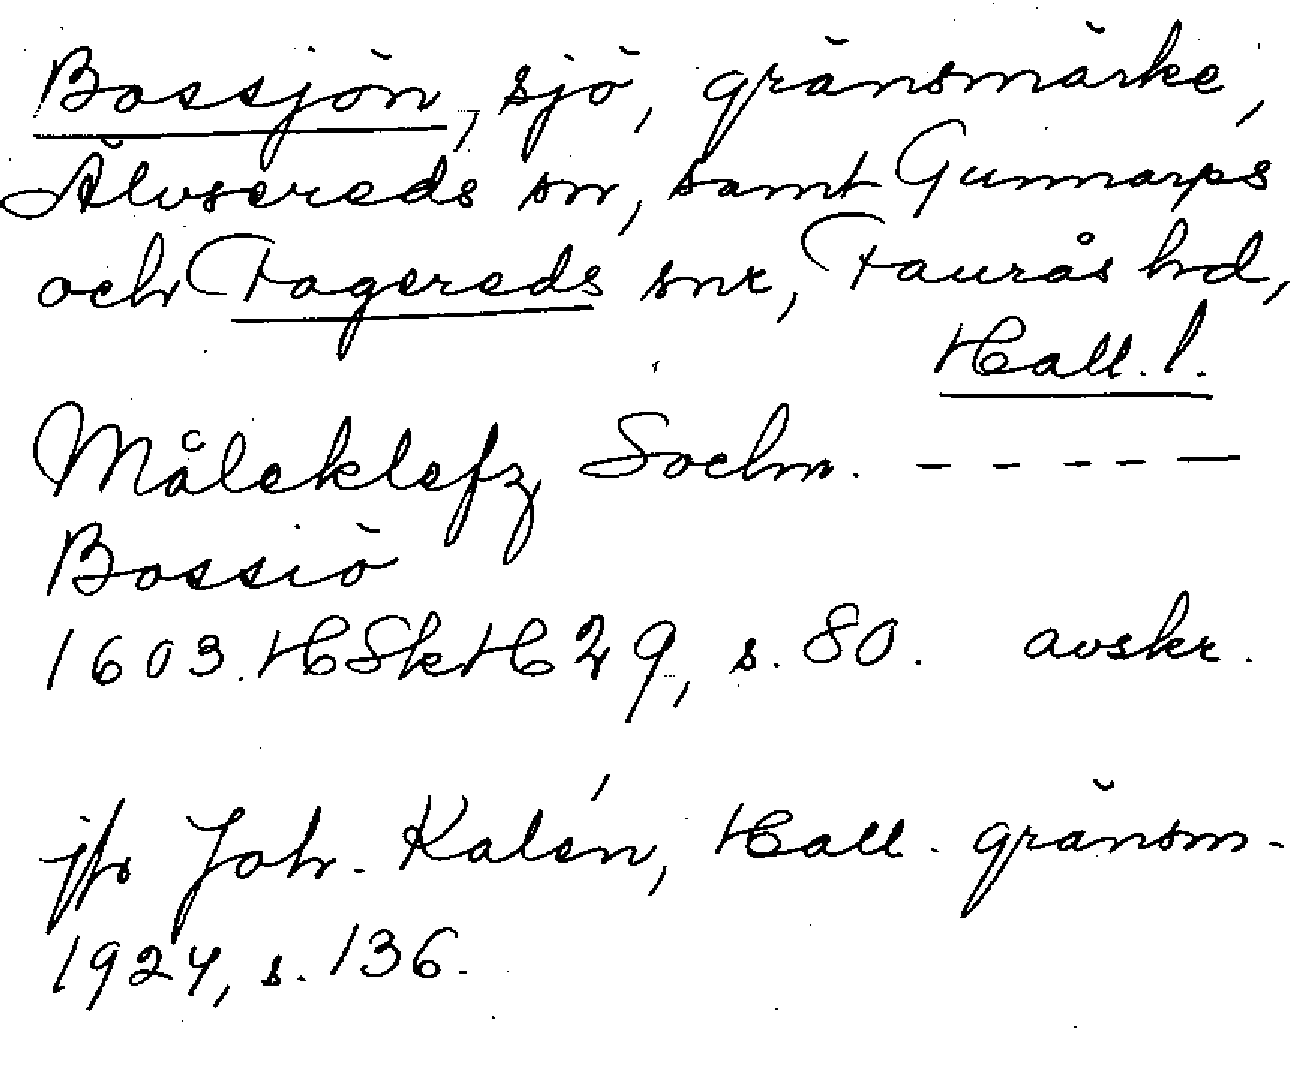 Bossjön, sjö, gränsmärke,
Älvsereds sn, samt Gunnarps
och Fagereds snr, Faurås hd,
Hall. l.
Måleklefz Sochn. - - - - -
Bossiö
1603. HSkH 29, s. 80. avskr.
jfr Joh. Kalén, Hall. gränsm.
1924, s. 136.